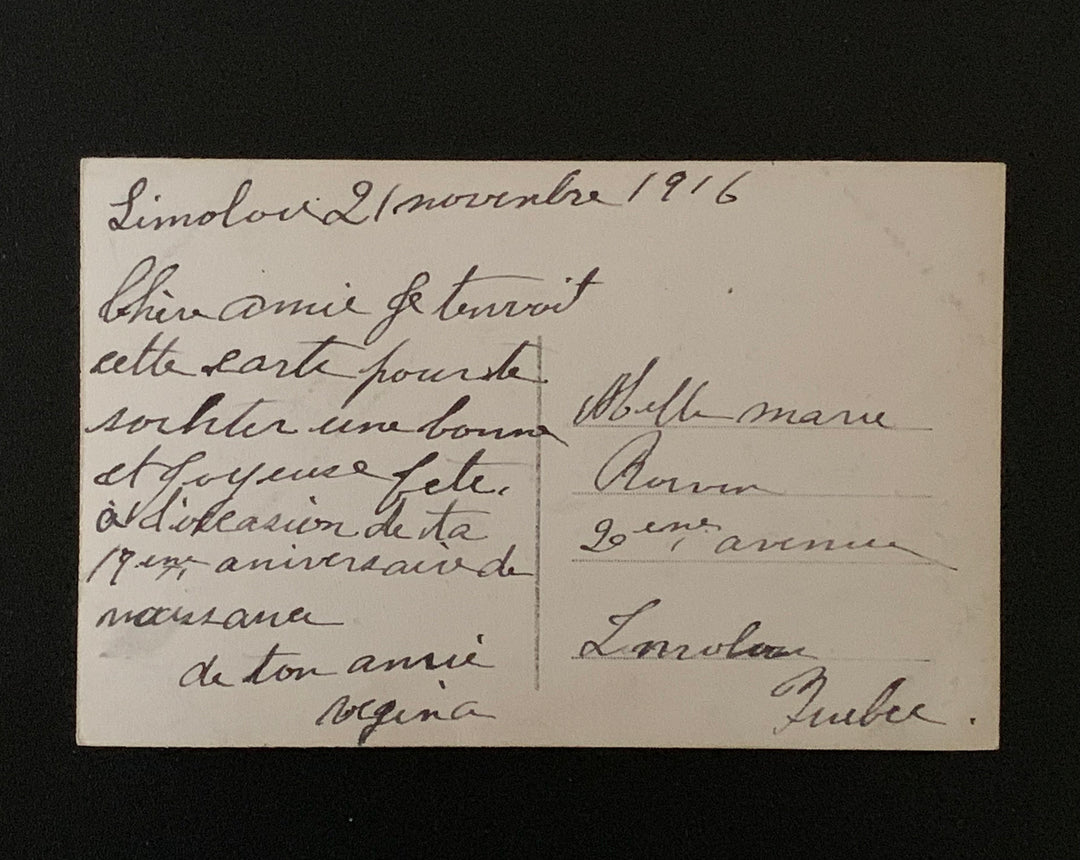 Limolou 21 novenbre 1916
Chère amie Je tenvoit
cette carte pour te
souhter une bonne
et Joyeuse fete,
à l'occasion de ta
19 eme aniversaire de
naissance
de ton amie
regina
Melle marie
2 eme avenue
Limolou
Quebec.